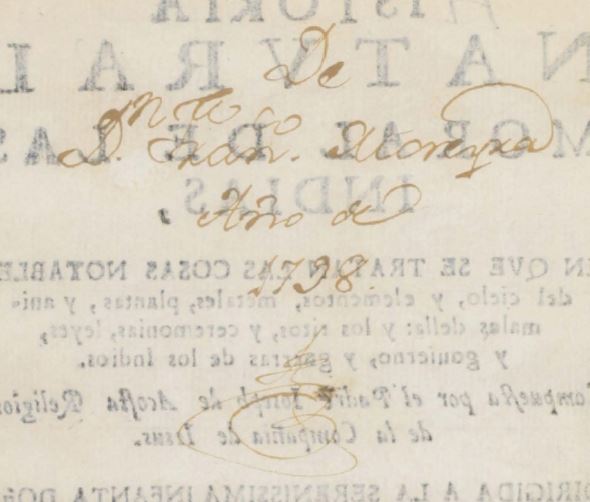 HISTORIA
De
NATVRAL
D. Fran.co Moreyra
MORAL DE LAS
INDIAS,
Año de
EN QVE SE TRATAN LAS COSAS NOTABLE
1798.
del cielo, y elementos, metales, plantas, y ani-
males della: y los ritos, y ceremonias, leyes,
y gouierno, y guerras de los Indios.
Compuesta por el Padre Ioseph de Acosta Religio
de la Compañia de Iesus.
DIRIGIDA A LA SERENISSIMA INFANTA DOÑ